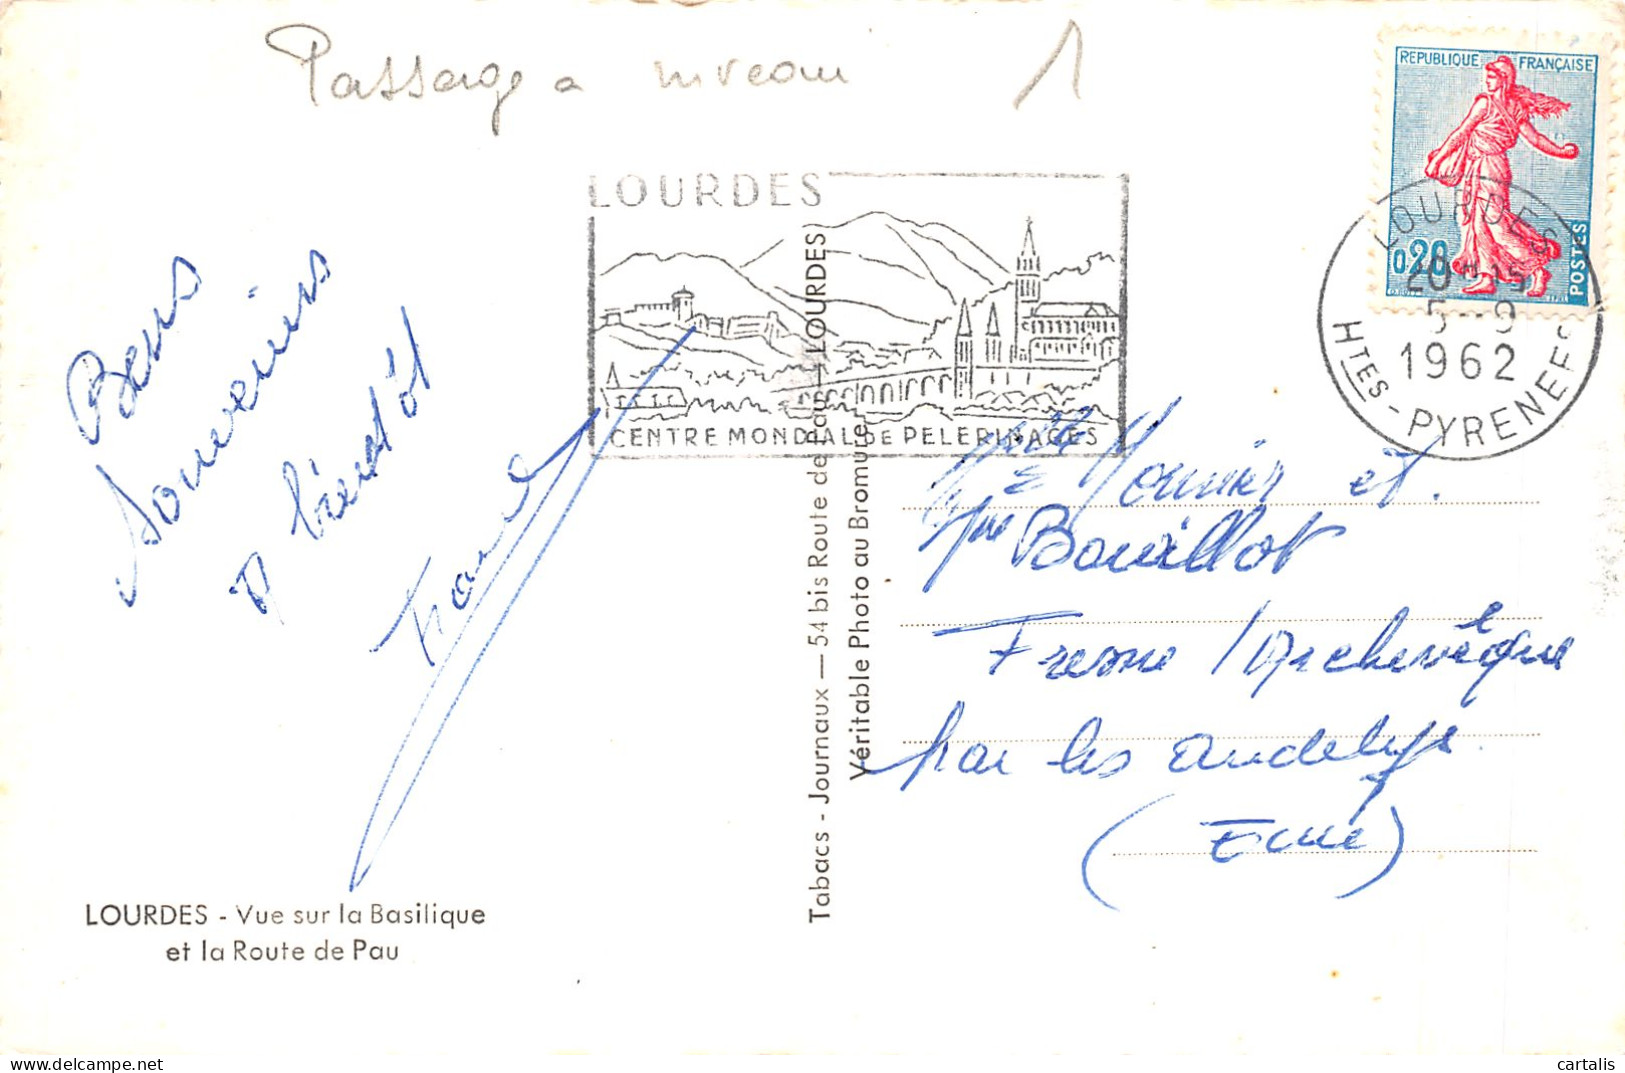 Passage a niveau 1
REPUBLIQUE FRANÇAISE
0,20
POSTES
LOURDES
20H15
5-9
1962
HTES-PYRENEES
LOURDES
CENTRE MONDIAL DE PELERINAGES
Bons
Souvenirs
Tabacs - Journaux — 54 bis Route de Pau — LOURDES
Véritable Photo au Bromure
Monnier et
Bouillot
Fresne l'Archevêque
par les andelys
(Eure)
LOURDES - Vue sur la Basilique
et la Route de Pau
cartalis